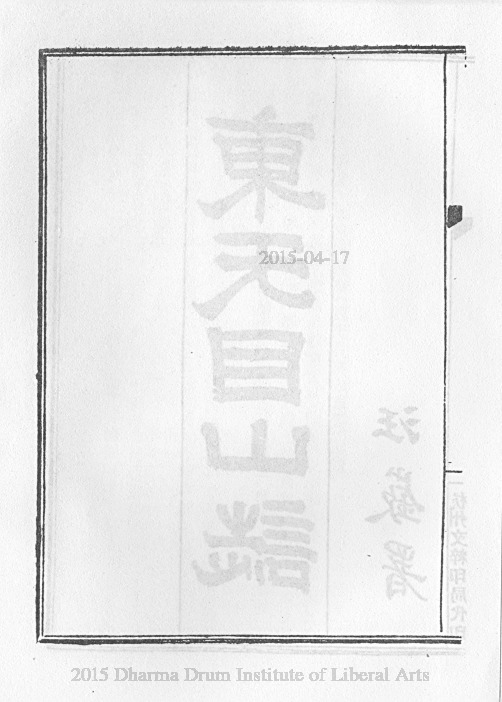 東天目山誌
杭州文粹印局代印
2015-04-17
2015 Dharma Drum Institute of Liberal Arts